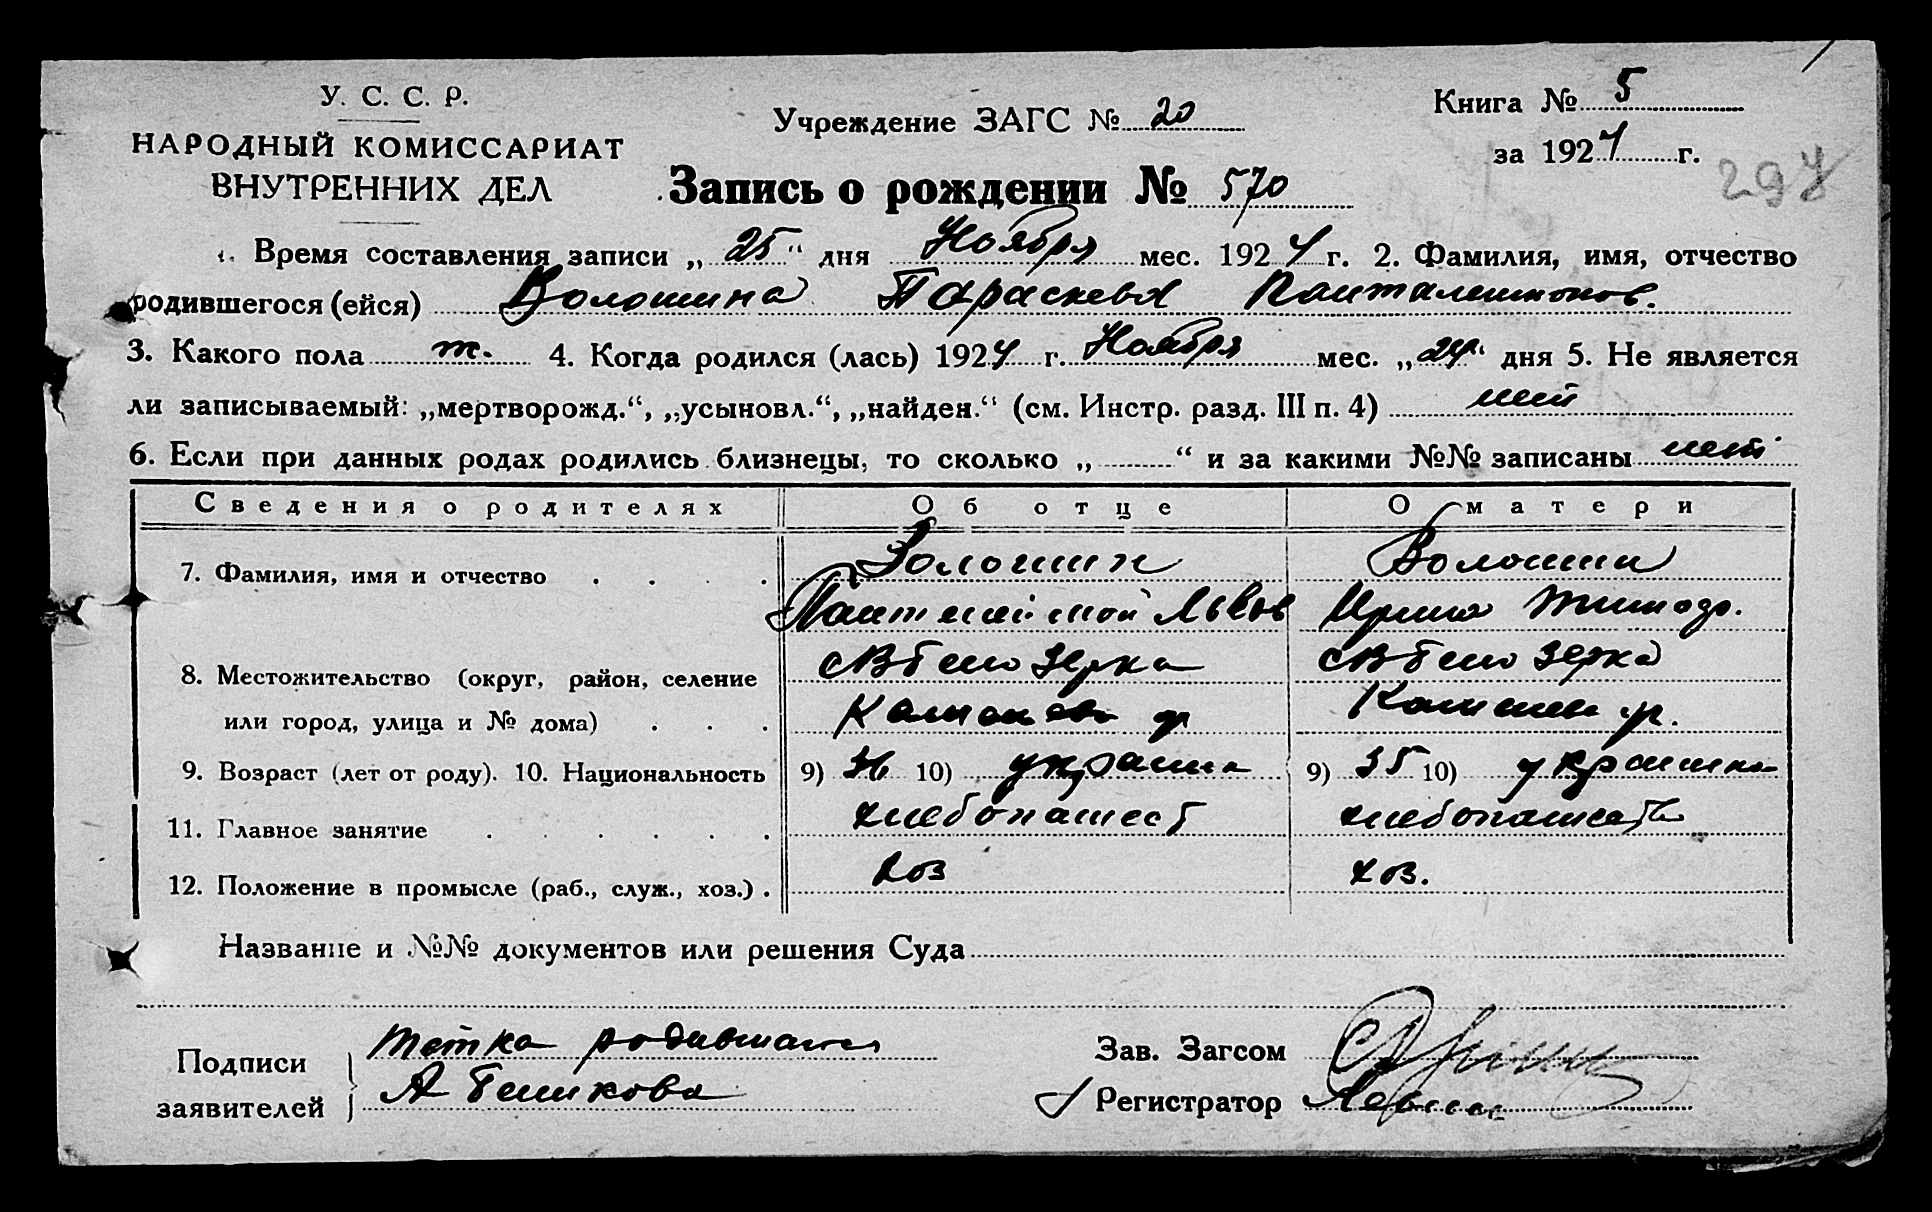 У. С. С. Р.
НАРОДНЫЙ КОМИССАРИАТ
ВНУТРЕННИХ ДЕЛ
Учреждение ЗАГС № 20
Книга № 5
за 1924 г.
297
Запись о рождении № 570
1. Время составления записи „25“ дня Ноября мес. 1924 г. 2. Фамилия, имя, отчество
родившегося (ейся) Волошина Параскевья Панталешмонов.
3. Какого пола ж. 4. Когда родился (лась) 1924 г. Ноября мес. „24“ дня 5. Не является
ли записываемый: „мертворожд.“, „усыновл.“, „найден.“ (см. Инстр. разд. III п. 4) нет
6. Если при данных родах родились близнецы, то сколько „ “ и за какими №№ записаны нет
Сведения о родителях Об отце О матери
7. Фамилия, имя и отчество Волошин Волошин
Львов Ирина Тимоф.
8. Местожительство (округ, район, селение Белозерка Белозерка
или город, улица и № дома)
9. Возраст (лет от роду). 10. Национальность 9) 36 10) украин 9) 35 10) украинка
11. Главное занятие хлебопашест хлебопашеств
12. Положение в промысле (раб., служ., хоз.) хоз хоз.
Название и №№ документов или решения Суда
Подписи Тетка родившагося
заявителей А
Зав. Загсом
Регистратор